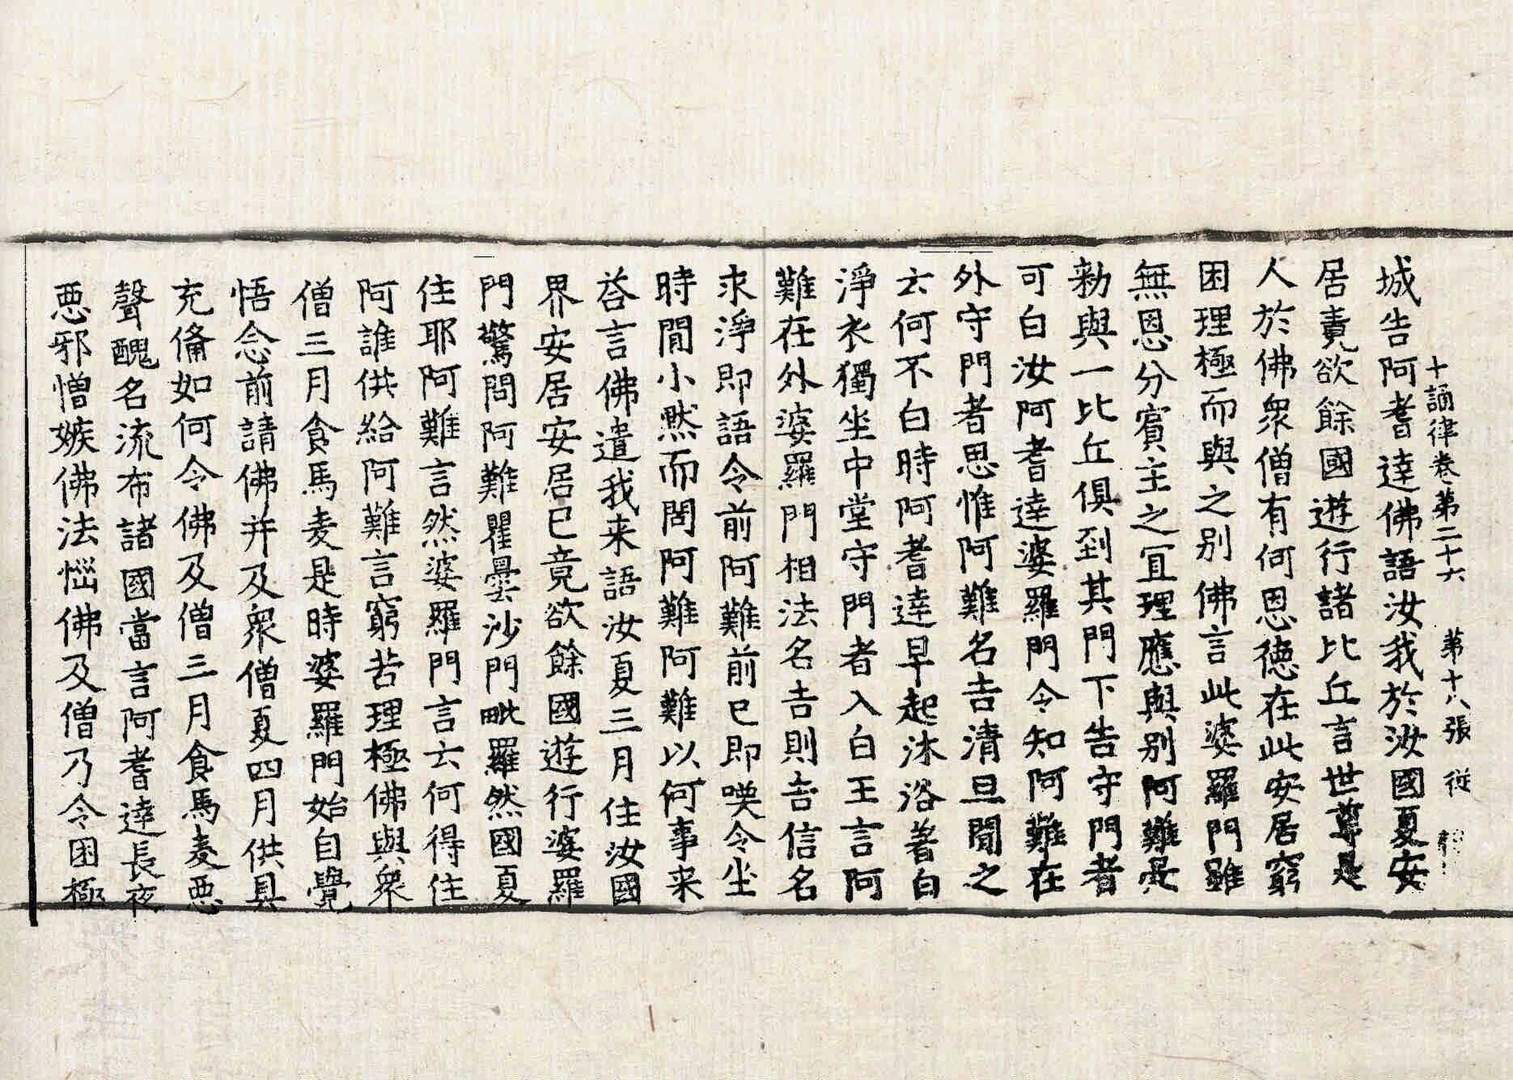 城告阿耆達佛語汝我於汝國夏安
十誦律卷第二十六 第十八張 従
居竟欲餘國遊行諸比丘言世尊是
人於佛衆僧有何恩德在此安居窮
困理極而與之别佛言此婆羅門雖
無恩分賔主之冝理應與别阿難受
勑與一比丘俱到其門下告守門者
可白汝阿耆達婆羅門令知阿難在
外守門者思惟阿難名吉清旦聞之
云何不白時阿耆達早起沐浴著白
淨衣獨坐中堂守門者入白王言阿
難在外婆羅門相法名吉則吉信名
求淨即語令前阿難前已即嘆令坐
時閒小黙而問阿難阿難以何事来
荅言佛遣我来語汝夏三月住汝國
界安居安居已竟欲餘國遊行婆羅
門驚問阿難瞿曇沙門毗羅然國夏
住耶阿難言然婆羅門言云何得住
阿誰供給阿難言窮苦理極佛與衆
僧三月食馬麦是時婆羅門始自覺
悟念前請佛并及衆僧夏四月供具
充俻如何令佛及僧三月食馬麦惡
聲醜名流布諸國當言阿耆達長夜
惡邪憎嫉佛法惱佛及僧乃令困極